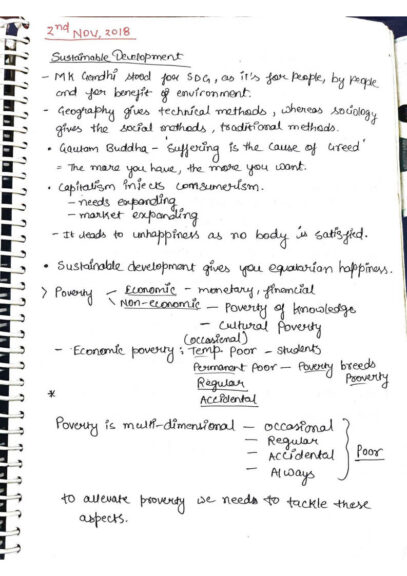 2nd NOV, 2018
Sustainable Development
- MK Gandhi stood for SDG, as it's for people, by people
and for benefit of environment.
- Geography gives technical methods, whereas sociology
gives the social methods, traditional methods.
• Gautam Buddha - Suffering is the cause of Greed'
= The more you have, the more you want.
• Capitalism injects consumerism.
- needs expanding
- market expanding
- It leads to unhappiness as no body is satisfied.
• Sustainable development gives you equatarian happiness.
> Poverty - Economic - monetary, financial
Non-economic - Poverty of knowledge
- Cultural Poverty
(occasional)
- Economic poverty : Temp. Poor - Students
Permanent Poor - Poverty breeds
Proverty
Regular
* Accidental
Poverty is multi-dimensional - occasional
- Regular
- Accidental
- Always
Poor
to allevate proverty we needs to tackle these
aspects.